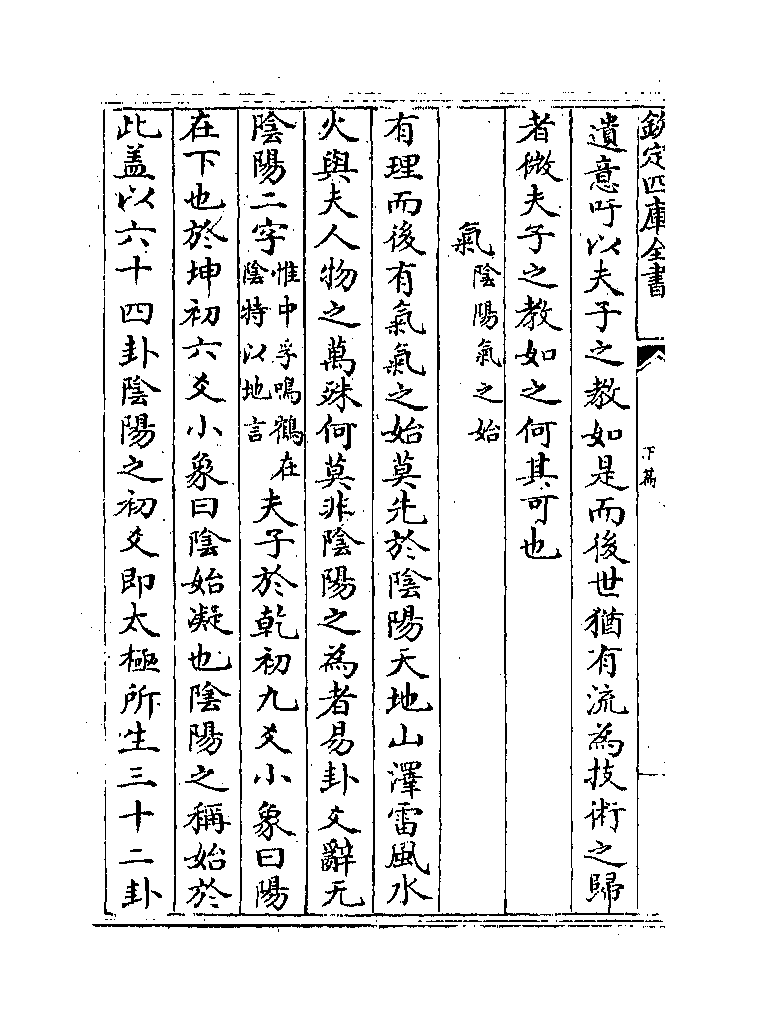 欽定四庫全書
下篇
遺意吁以夫子之教如是而後世猶有流為技術之歸
者微夫子之教如之何其可也
氣陰陽氣之始
有理而後有氣氣之始莫先於陰陽天地山澤雷風水
火與夫人物之萬殊何莫非陰陽之為者易卦爻辭无
陰陽二字惟中孚鳴鶴在陰特以地言夫子於乾初九爻小象曰陽
在下也於坤初六爻小象曰陰始凝也陰陽之稱始於
此盖以六十四卦陰陽之初爻即太極所生三十二卦